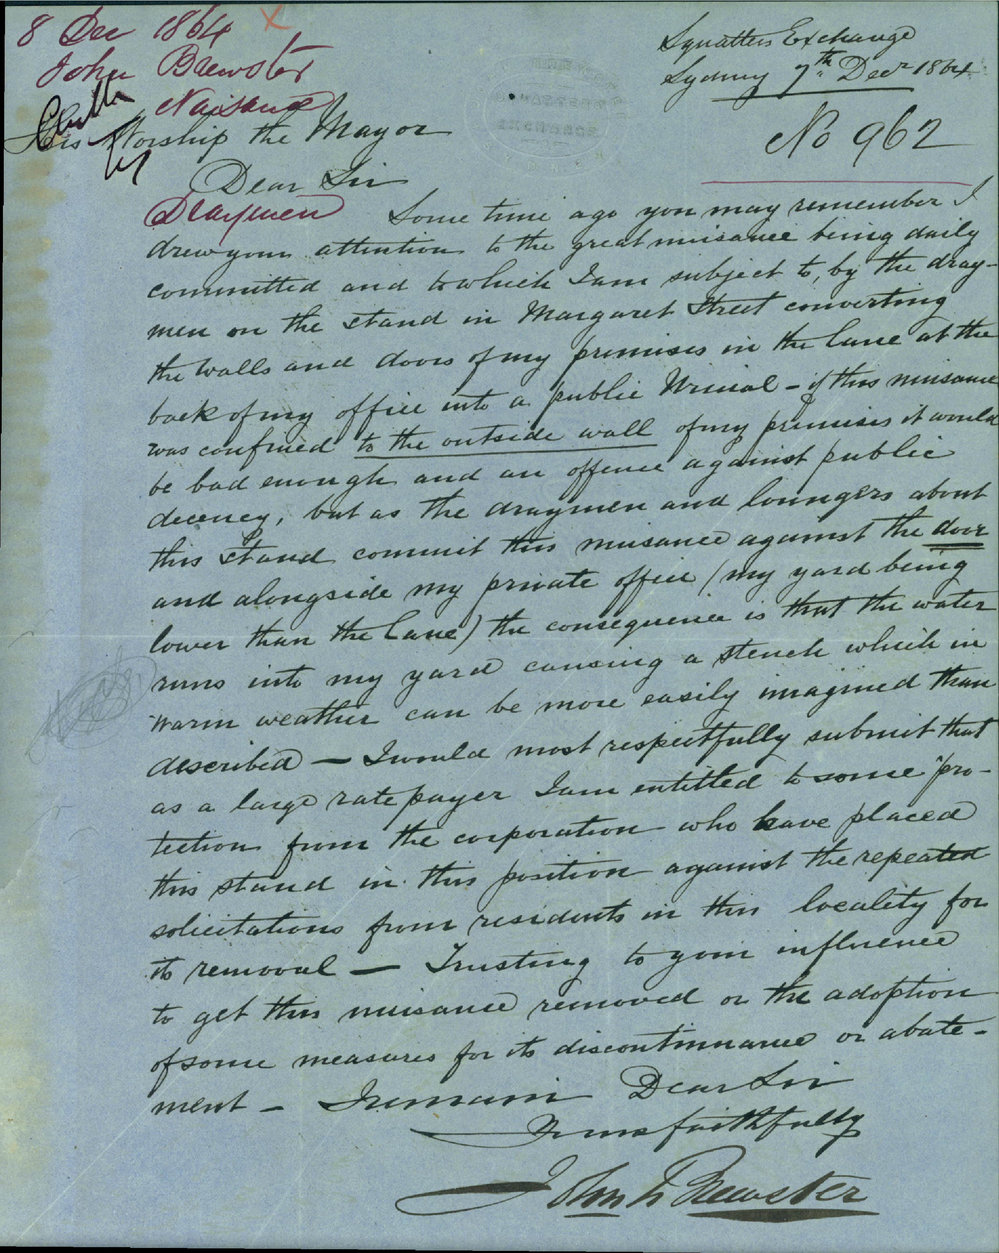 8 Dec 1864 X
John Brewster
Nuisance
Squatters Exchange
Sydney 7th Decr 1864
No 962
His Worship the Mayor
Dear Sir
Draymen
Some time ago you may remember I
drew your attention to the great nuisance being daily
committed and to which I am subject to, by the dray-
men on the stand in Margaret Street converting
the walls and doors of my premises in the lane at the
back of my office into a public Urinal - if this nuisance
was confined to the outside wall of my premises it would
be bad enough and an offence against public
decency, but as the draymen and loungers about
this stand commit this nuisance against the door
and alongside my private office (my yard being
lower than the lane) the consequence is that the water
runs into my yard causing a stench which in
warm weather can be more easily imagined than
described - I would most respectfully submit that
as a large rate payer I am entitled to some pro-
tection from the corporation who have placed
this stand in this position against the repeated
solicitations from residents in this locality for
its removal - Trusting to your influence
to get this nuisance removed or the adoption
of some measures for its discontinuance or abate-
ment - I remain Dear Sir
Yours faithfully
John Brewster